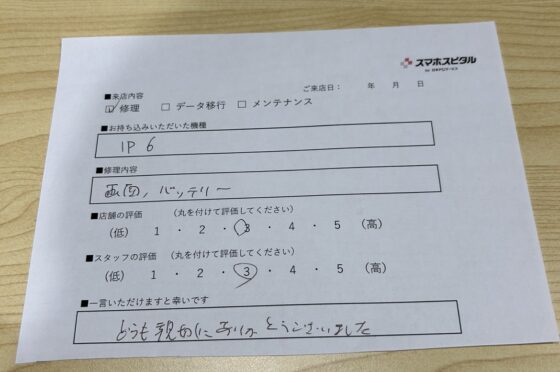 スマホスピタル
■来店内容
ご来店日： 年 月 日
☑ 修理 □ データ移行 □ メンテナンス
■お持ち込みいただいた機種
IP 6
■修理内容
画面, バッテリー
■店舗の評価 （丸を付けて評価してください）
（低） 1 ・ 2 ・ 3 ・ 4 ・ 5 （高）
■スタッフの評価 （丸を付けて評価してください）
（低） 1 ・ 2 ・ 3 ・ 4 ・ 5 （高）
■一言いただけますと幸いです
どうも親切にありがとうございました